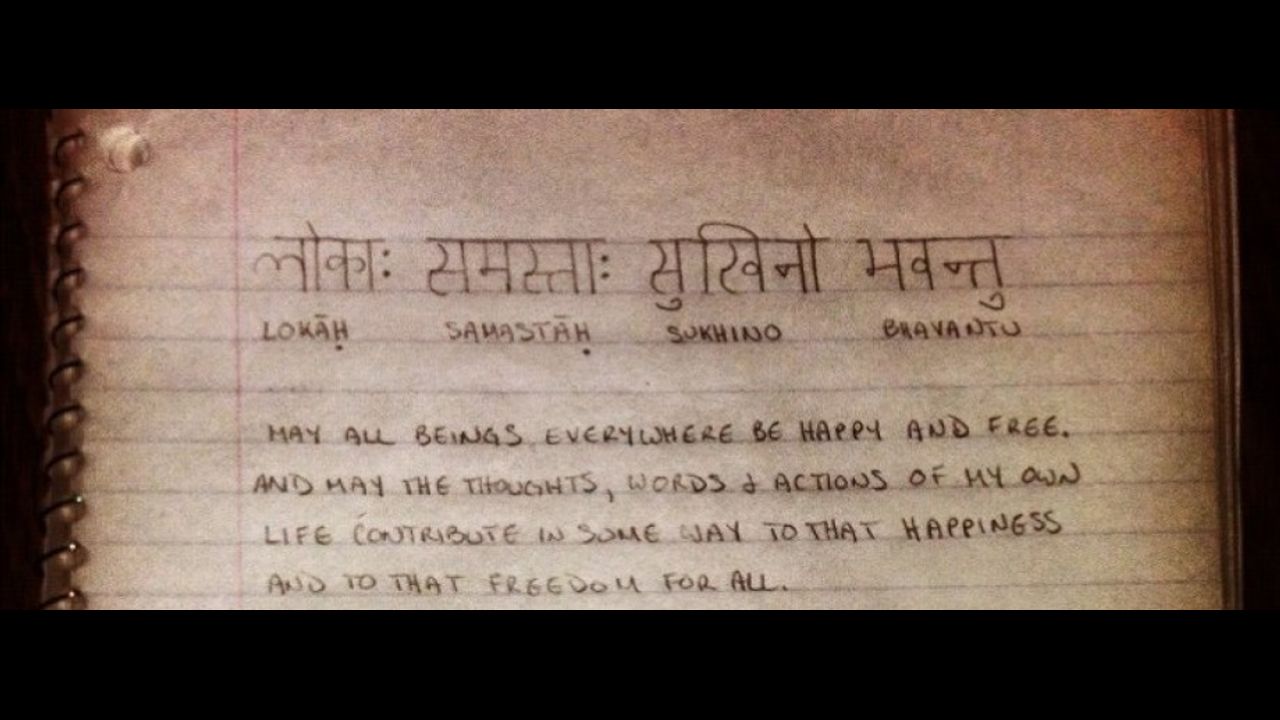 लोकाः समस्ताः सुखिनो भवन्तु
LOKĀḤ SAMASTĀḤ SUKHINO BHAVANTU
MAY ALL BEINGS EVERYWHERE BE HAPPY AND FREE.
AND MAY THE THOUGHTS, WORDS & ACTIONS OF MY OWN
LIFE CONTRIBUTE IN SOME WAY TO THAT HAPPINESS
AND TO THAT FREEDOM FOR ALL.